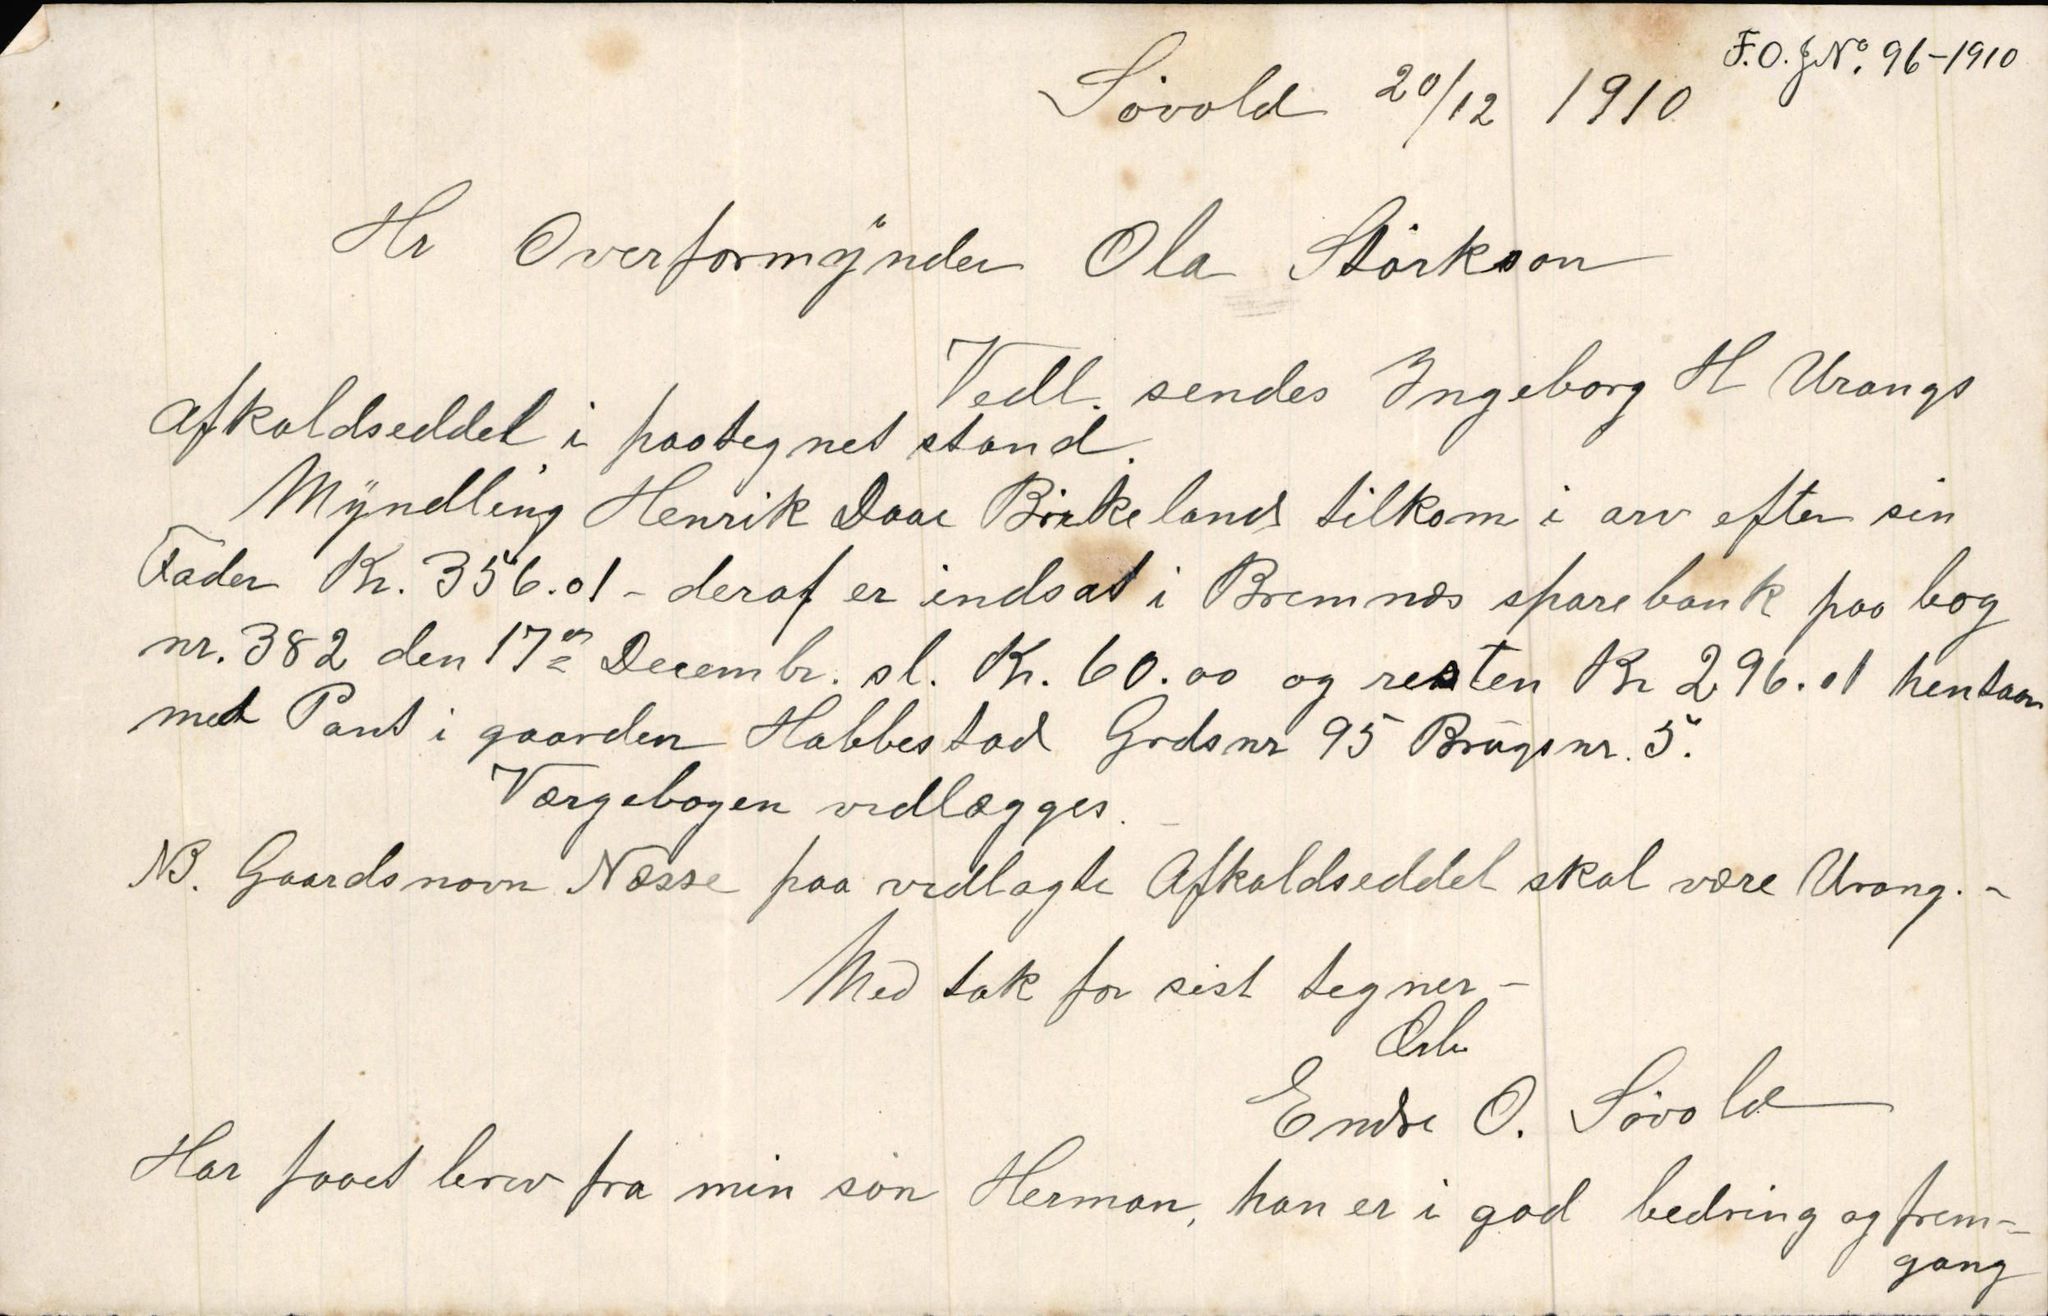 F.O.J.No. 96-1910
Søvold 20/12 1910
Hr Overformynder Ola Størkson
Vedl. sendes Ingeborg H Urangs
Afkaldseddel i paategnet stand.
Myndling Henrik Daae Birkeland tilkom i arv efter sin
Fader Kr. 356.01 - deraf er indsat i Bremnæs sparebank paa bog
nr. 382 den 17de Decembr. sl. Kr. 60.00 og resten Kr 296.01 henstaar
med Pant i gaarden Habbestad Grdsnr 95 Brugsnr. 5.
Værgebogen vedlægges.
NB. Gaardsnavn Næsse paa vedlagte Afkaldseddel skal være Urang. -
Med tak for sist tegner -
Ærb.
Endre O. Søvold
Har faaet brev fra min søn Herman, han er i god bedring og frem-
gang